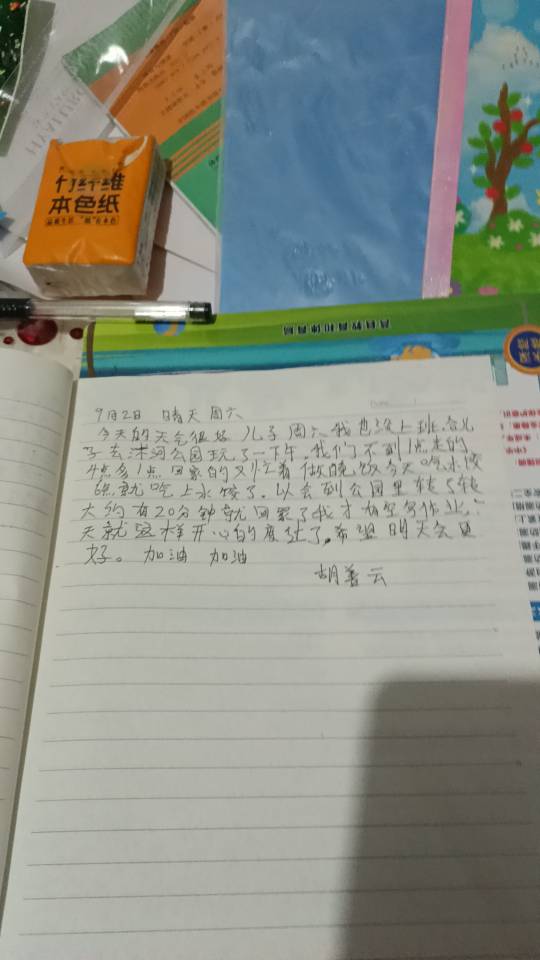 竹纤维
本色纸
Date
9月2日 晴天 周六
今天的天气很好 儿子周六我也没上班,合儿
子去沭河公园玩了一下午,我们不到1点走的
4点多1点回家的又忙着做晚饭今天吃水饺
6点就吃上水饺了。以会到公园里转了转
大约有20分钟就回家了我才有空写作业,
天就这样开心的度过了,希望明天会更
好。加油 加油
胡善云